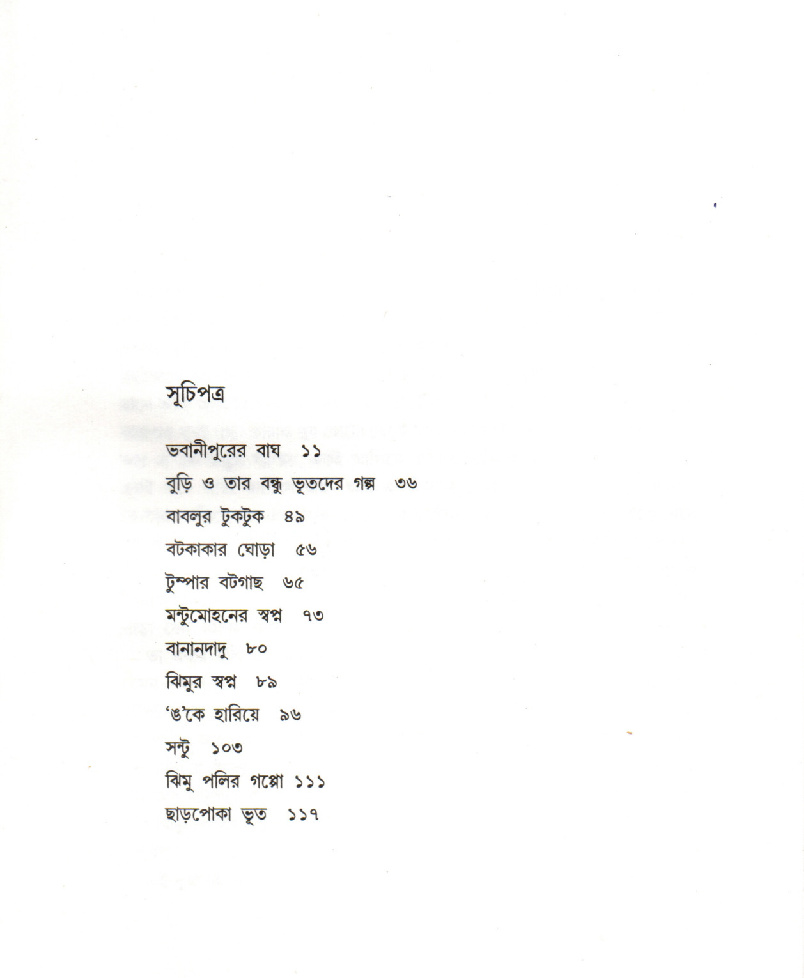 সূচিপত্র
ভবানীপুরের বাঘ ১১
বুড়ি ও তার বন্ধু ভূতদের গল্প ৩৬
বাবলুর টুকটুক ৪৯
বটকাকার ঘোড়া ৫৬
টুম্পার বটগাছ ৬৫
মন্টুমোহনের স্বপ্ন ৭৩
বানানদাদু ৮০
ঝিমুর স্বপ্ন ৮৯
‘ঙ’কে হারিয়ে ৯৬
সন্টু ১০৩
ঝিমু পলির গপ্পো ১১১
ছাড়পোকা ভূত ১১৭